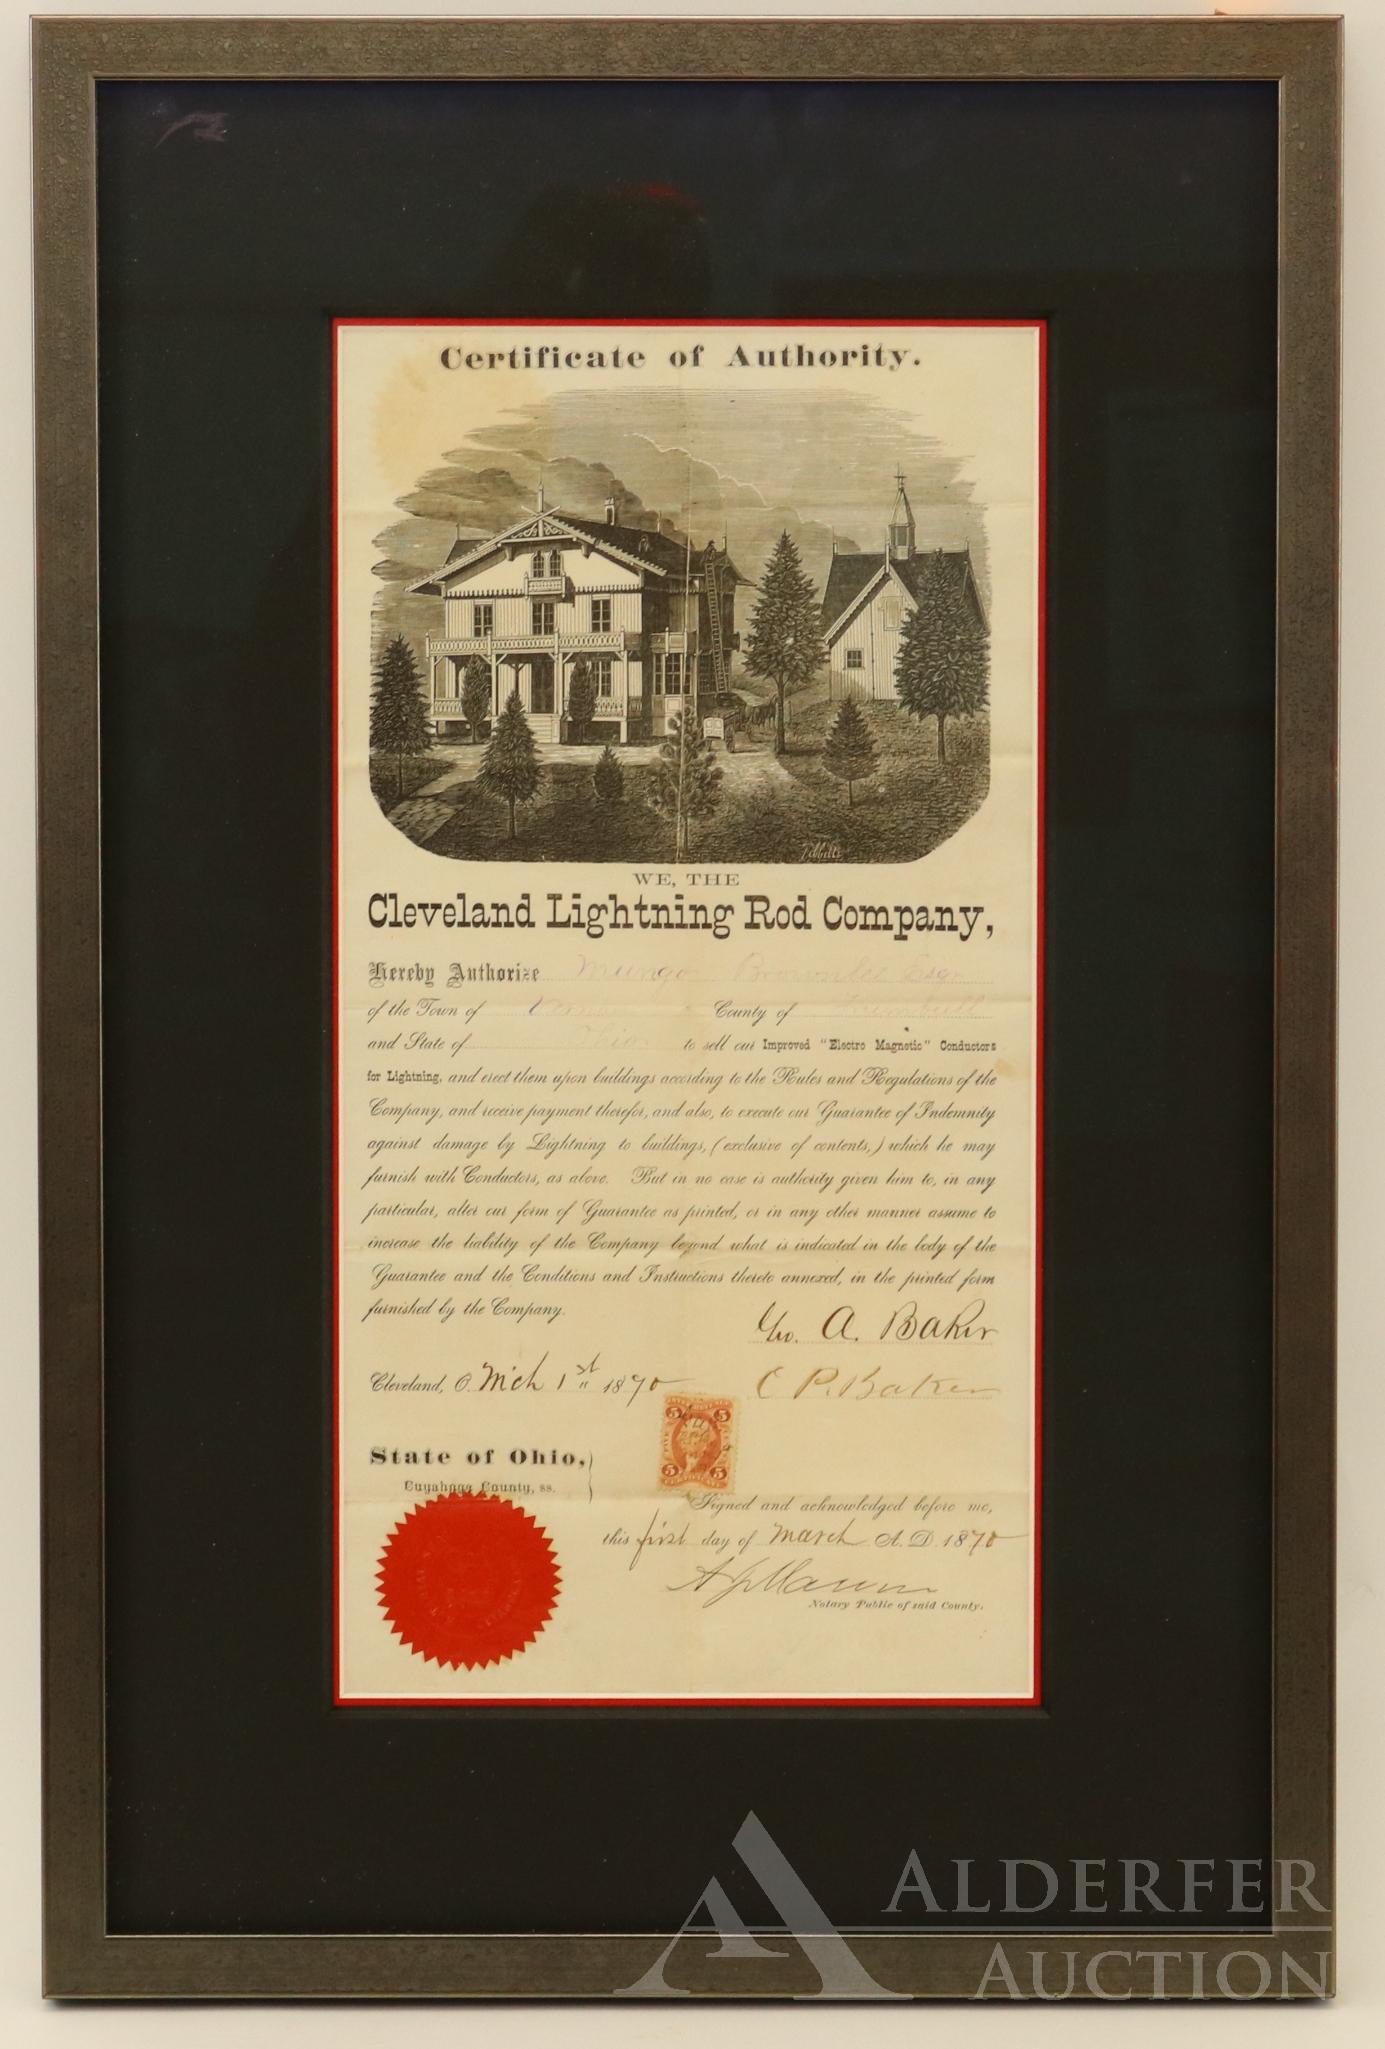 Certificate of Authority.
WE, THE
Cleveland Lightning Rod Company,
Hereby Authorize Mungo Brownlee Esqr
of the Town of Vernon County of Trumbull
and State of Ohio to sell our Improved "Electro Magnetic" Conductors
for Lightning, and erect them upon buildings according to the Rules and Regulations of the
Company, and receive payment therefor, and also, to execute our Guarantee of Indemnity
against damage by Lightning to buildings, (exclusive of contents,) which he may
furnish with Conductors, as above. But in no case is authority given him to, in any
particular, alter our form of Guarantee as printed, or in any other manner assume to
increase the liability of the Company beyond what is indicated in the body of the
Guarantee and the Conditions and Instructions thereto annexed, in the printed form
furnished by the Company.
Geo. A. Baker
Cleveland, O. Mch 1st 1870
C P. Baker
5 5
5 5
CERTIFICATE
State of Ohio,
Cuyahoga County, ss.
Signed and acknowledged before me,
this first day of March A. D. 1870
Notary Public of said County.
ALDERFER
AUCTION